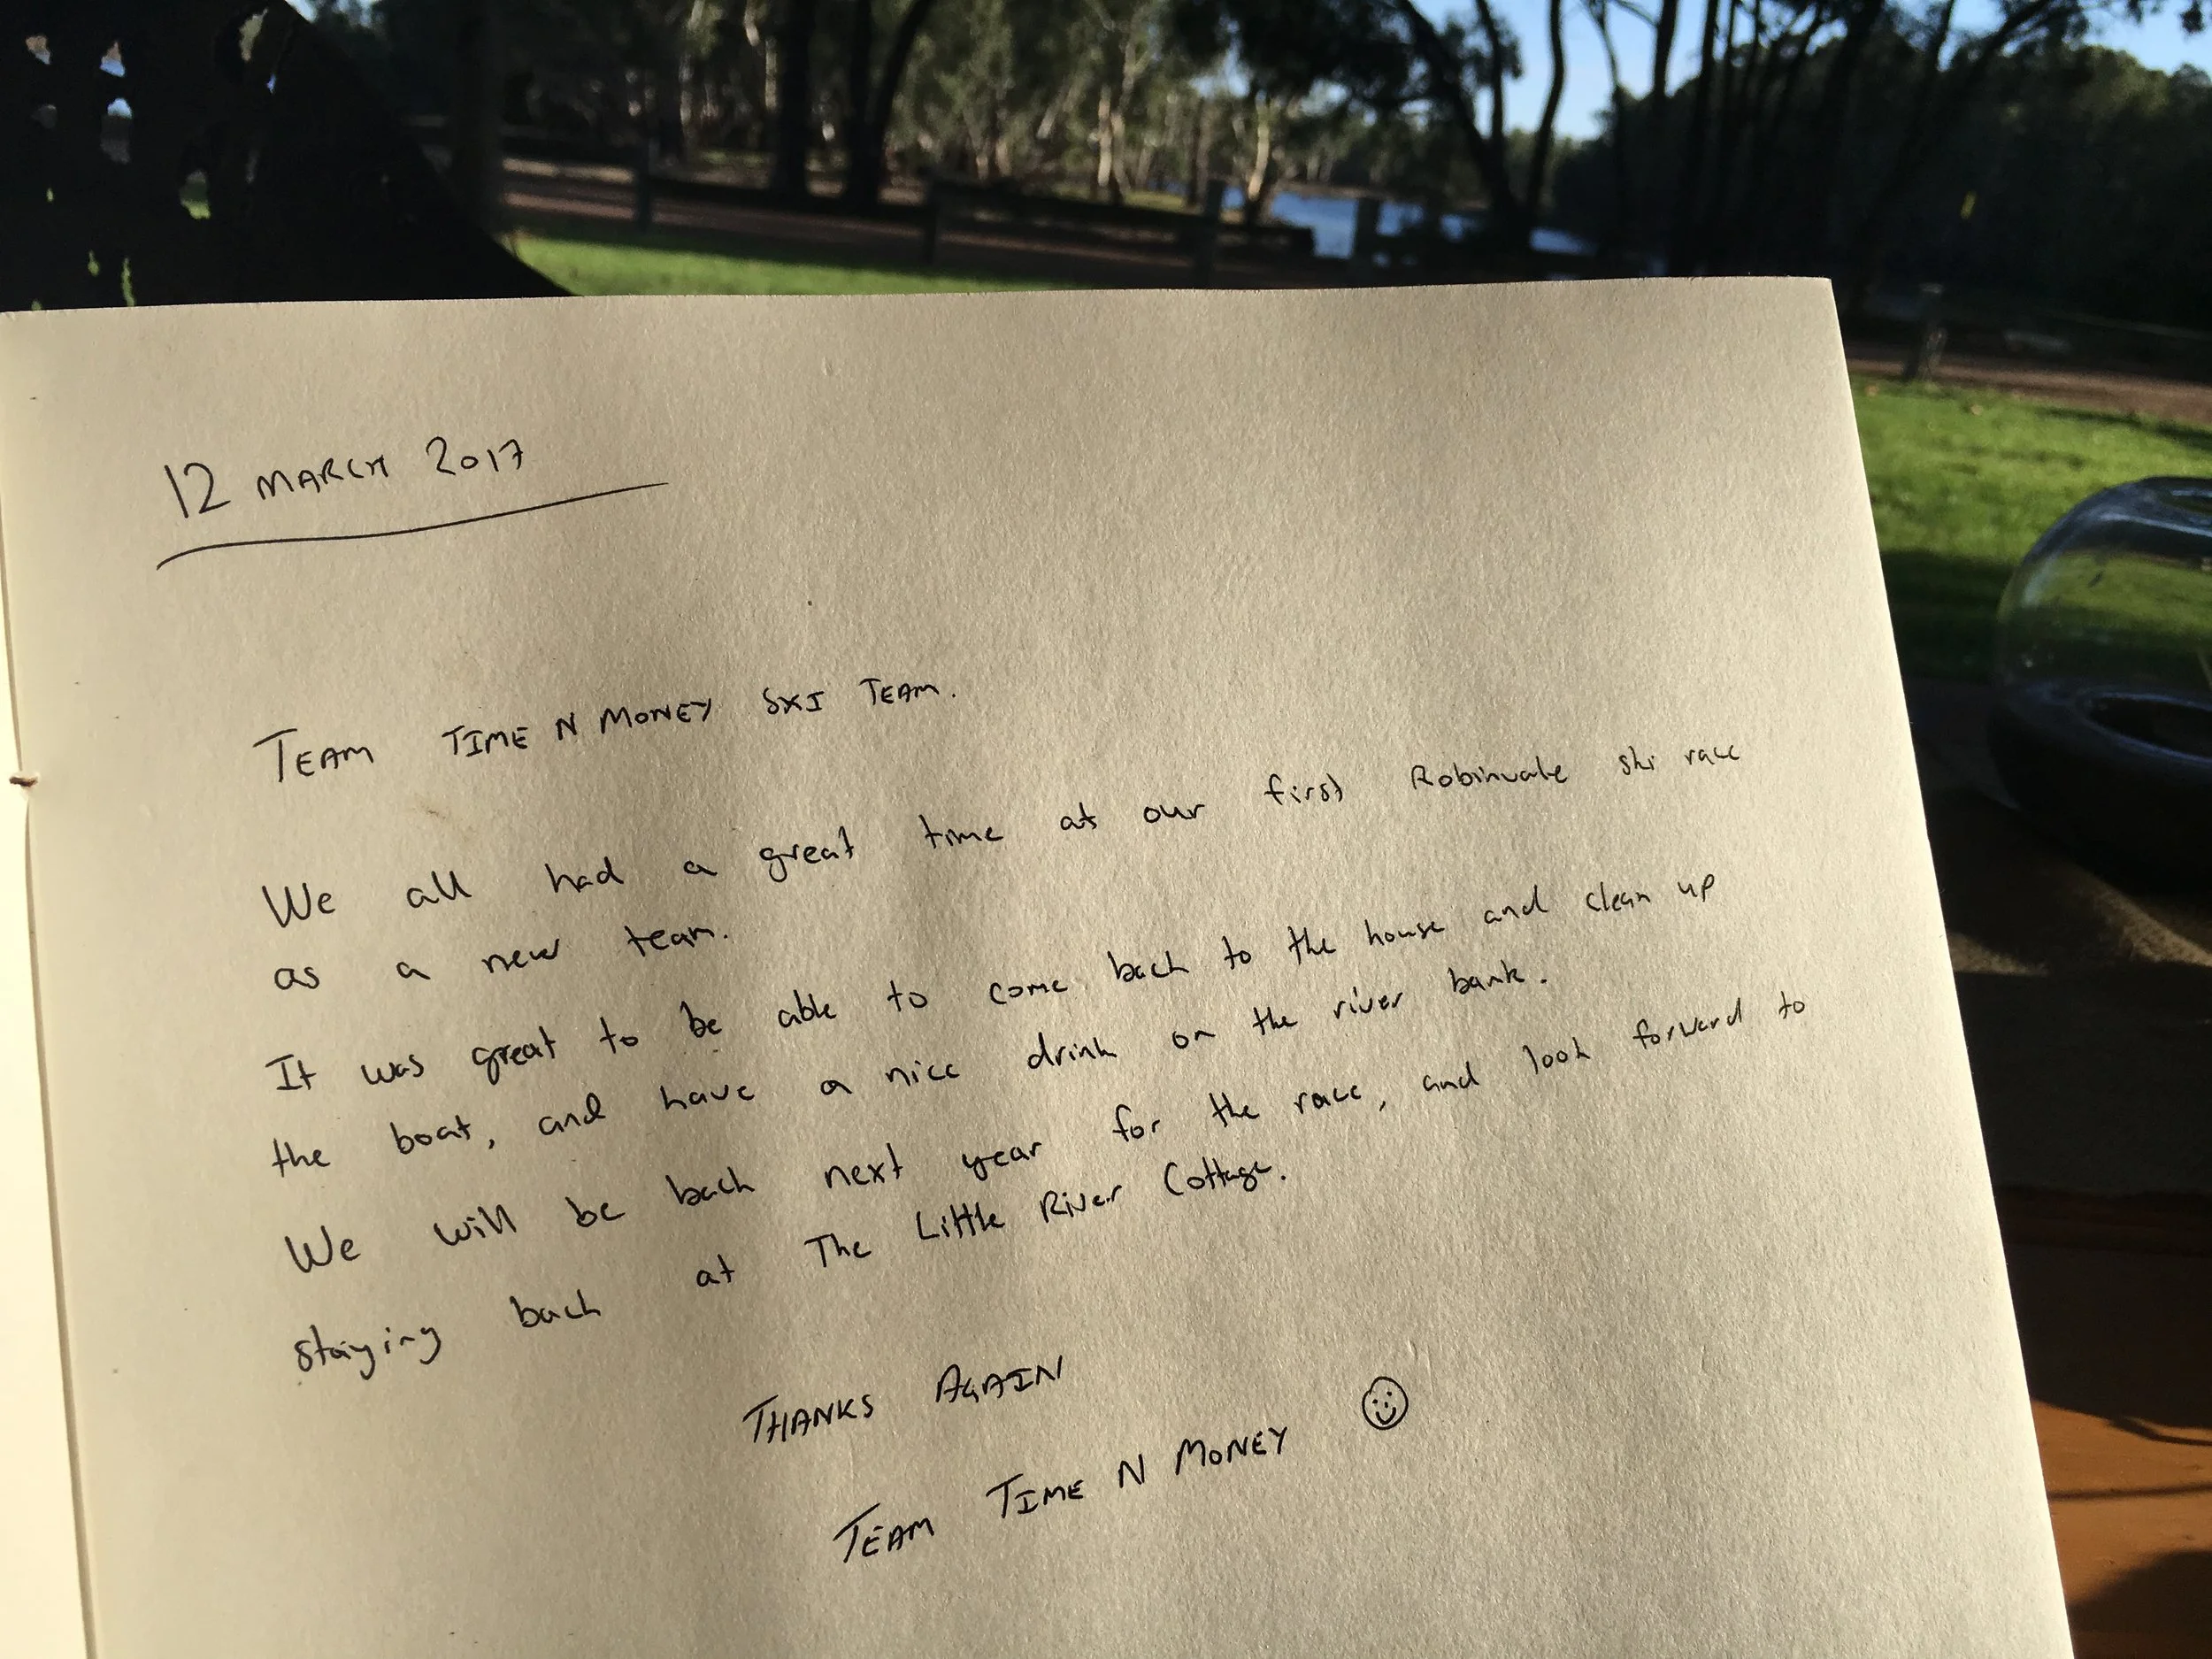 12 MARCH 2017
TEAM TIME N MONEY SKI TEAM.
We all had a great time at our first Robinvale ski race
as a new team.
It was great to be able to come back to the house and clean up
the boat, and have a nice drink on the river bank.
We will be back next year for the race, and look forward to
staying back at The Little River Cottage.
THANKS AGAIN
TEAM TIME N MONEY ☺